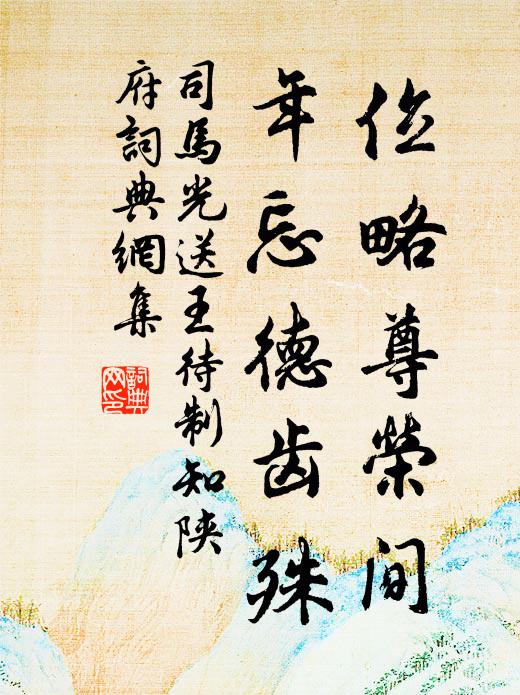 位略尊榮间
年忘德齿殊
司馬光送王待制知陕
府詞典網集
詞典网印